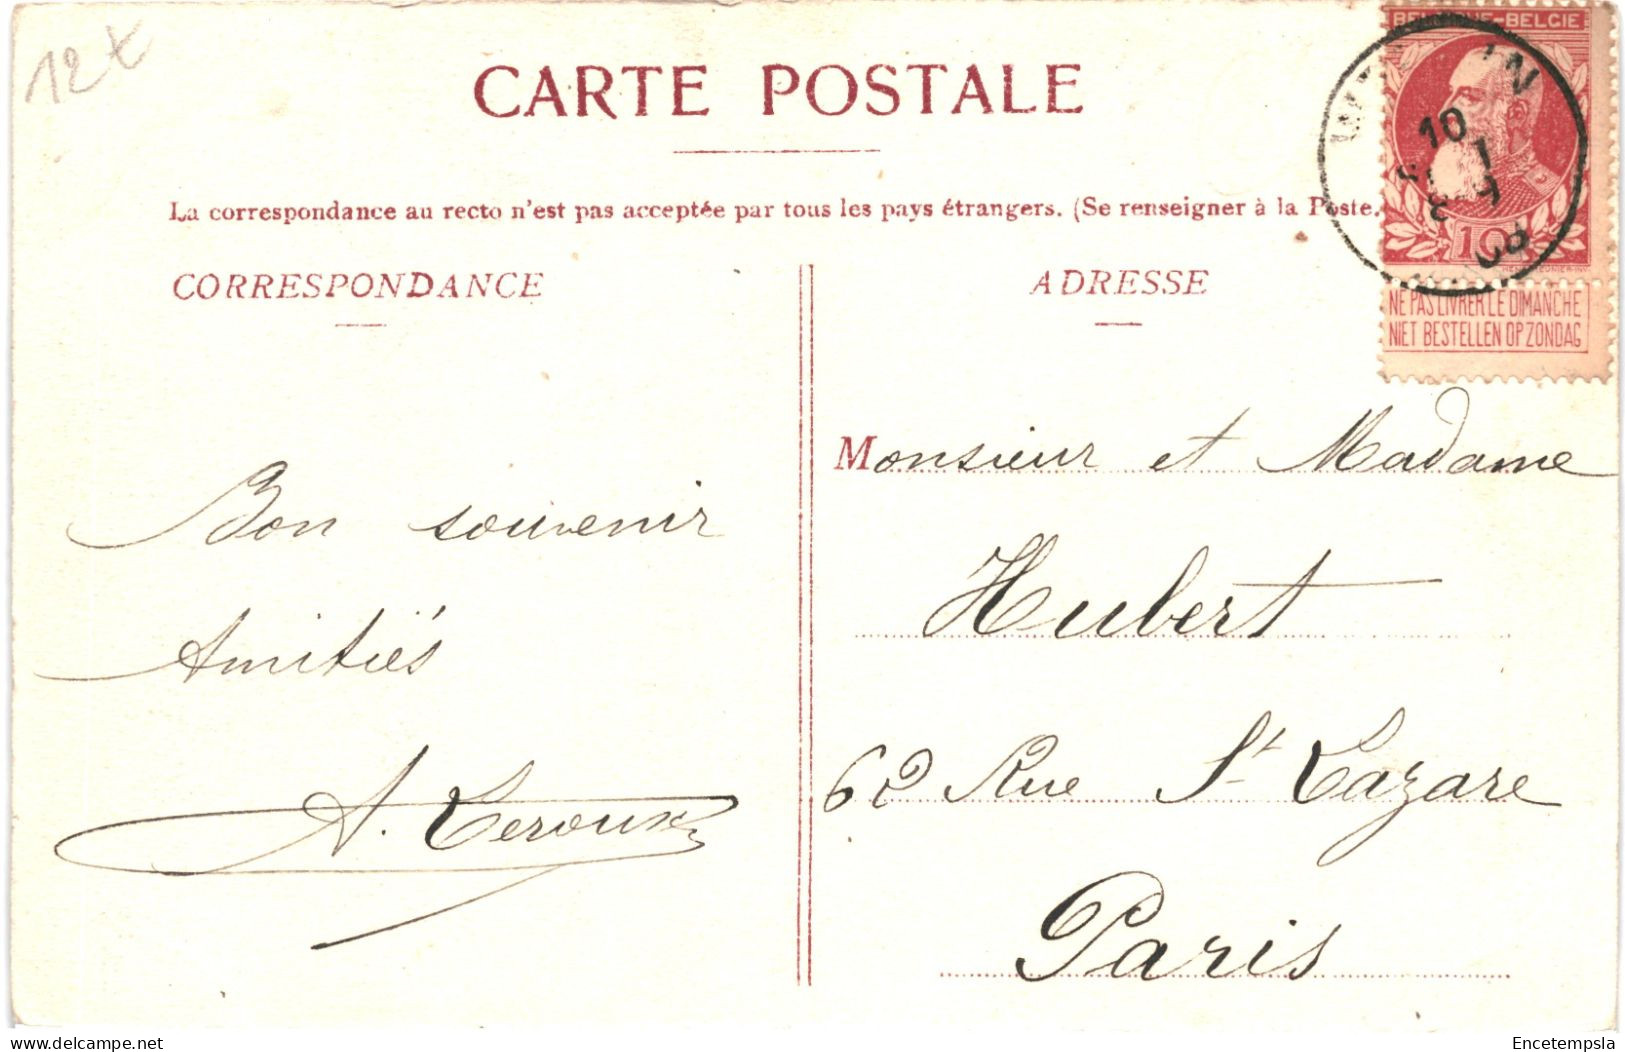 12 €
CARTE POSTALE
BELGIQUE-BELGIE
10
10
NE PAS LIVRER LE DIMANCHE
NIET BESTELLEN OP ZONDAG
La correspondance au recto n'est pas acceptée par tous les pays étrangers. (Se renseigner à la Poste.
CORRESPONDANCE
Bon souvenir
Amitiés
A. Leroux
ADRESSE
Monsieur et Madame
Hubert
62 Rue St Lazare
Paris
delcampe.net
Encetempsla